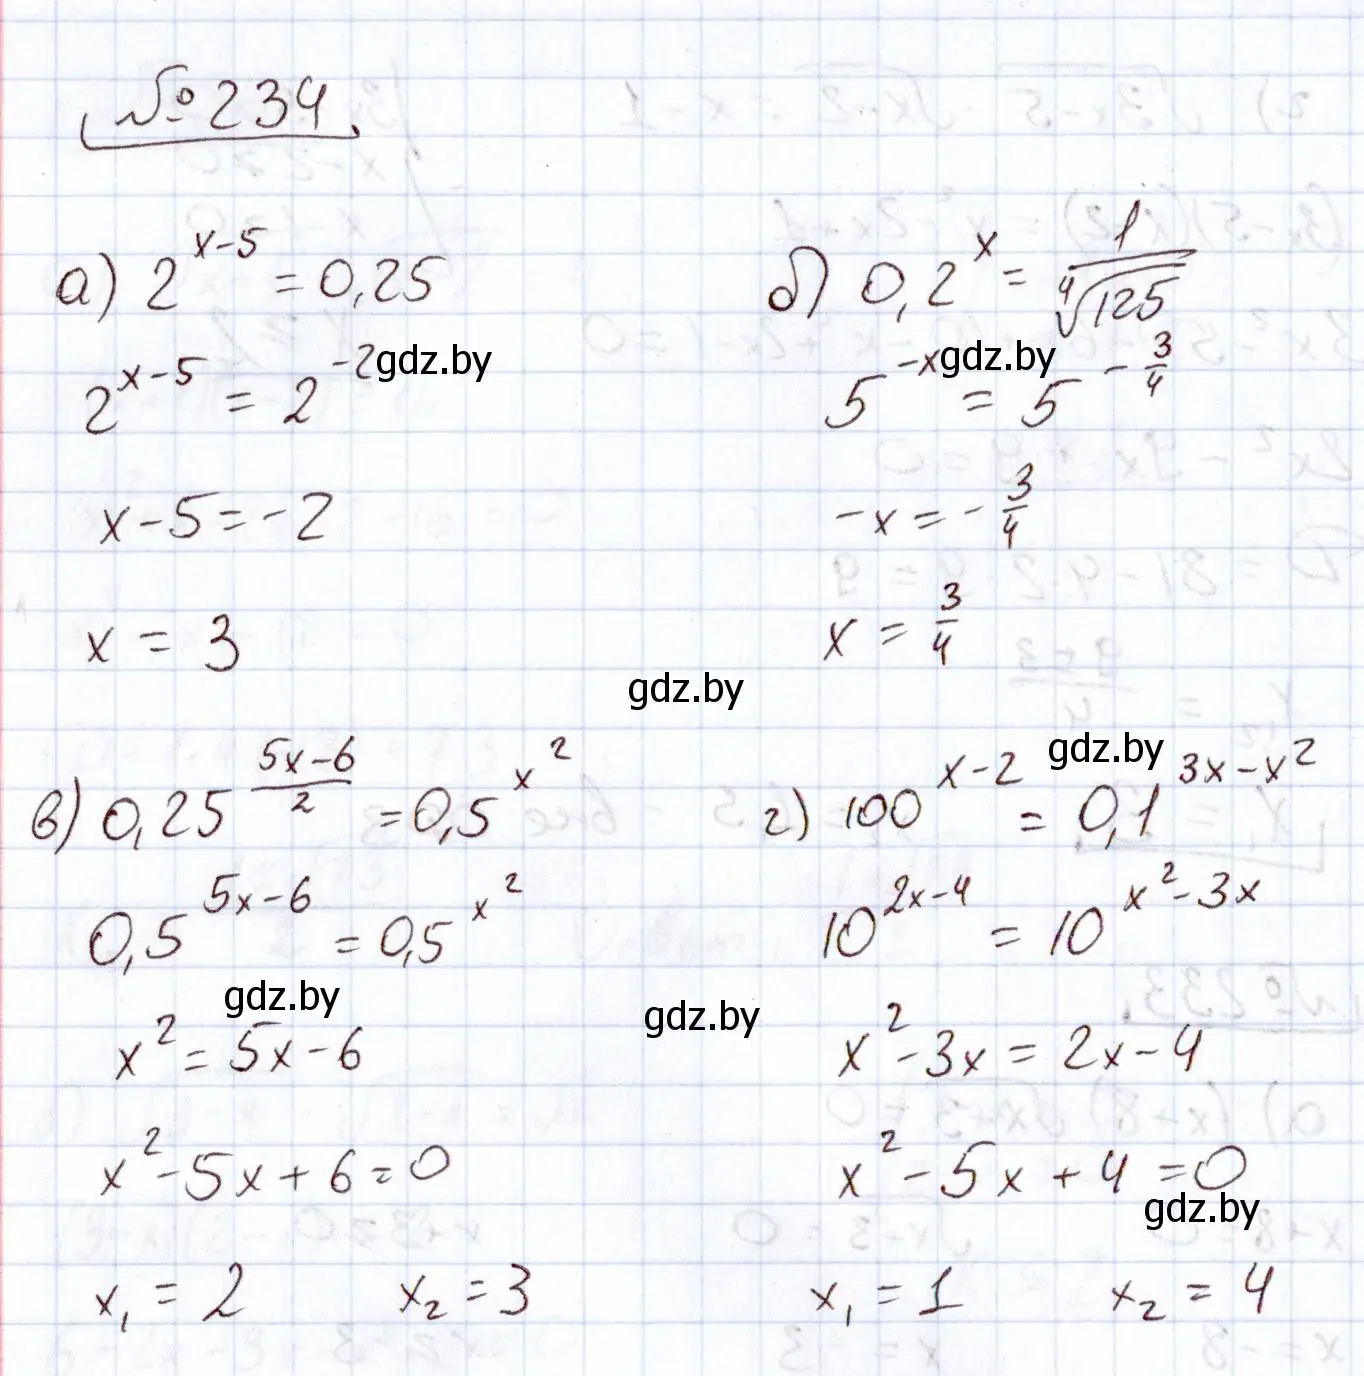 №234
а) 2^(x-5) = 0,25
2^(x-5) = 2^(-2)
x-5=-2
x = 3
б) 0,2^x = 1/⁴√125
5^(-x) = 5^(-3/4)
-x = -3/4
x = 3/4
в) 0,25^((5x-6)/2) = 0,5^(x²)
0,5^(5x-6) = 0,5^(x²)
x² = 5x-6
x²-5x+6=0
x₁ = 2 x₂ = 3
г) 100^(x-2) = 0,1^(3x-x²)
10^(2x-4) = 10^(x²-3x)
x²-3x = 2x-4
x²-5x+4=0
x₁ = 1 x₂ = 4
gdz.by
gdz.by
gdz.by
gdz.by
gdz.by
gdz.by
gdz.by